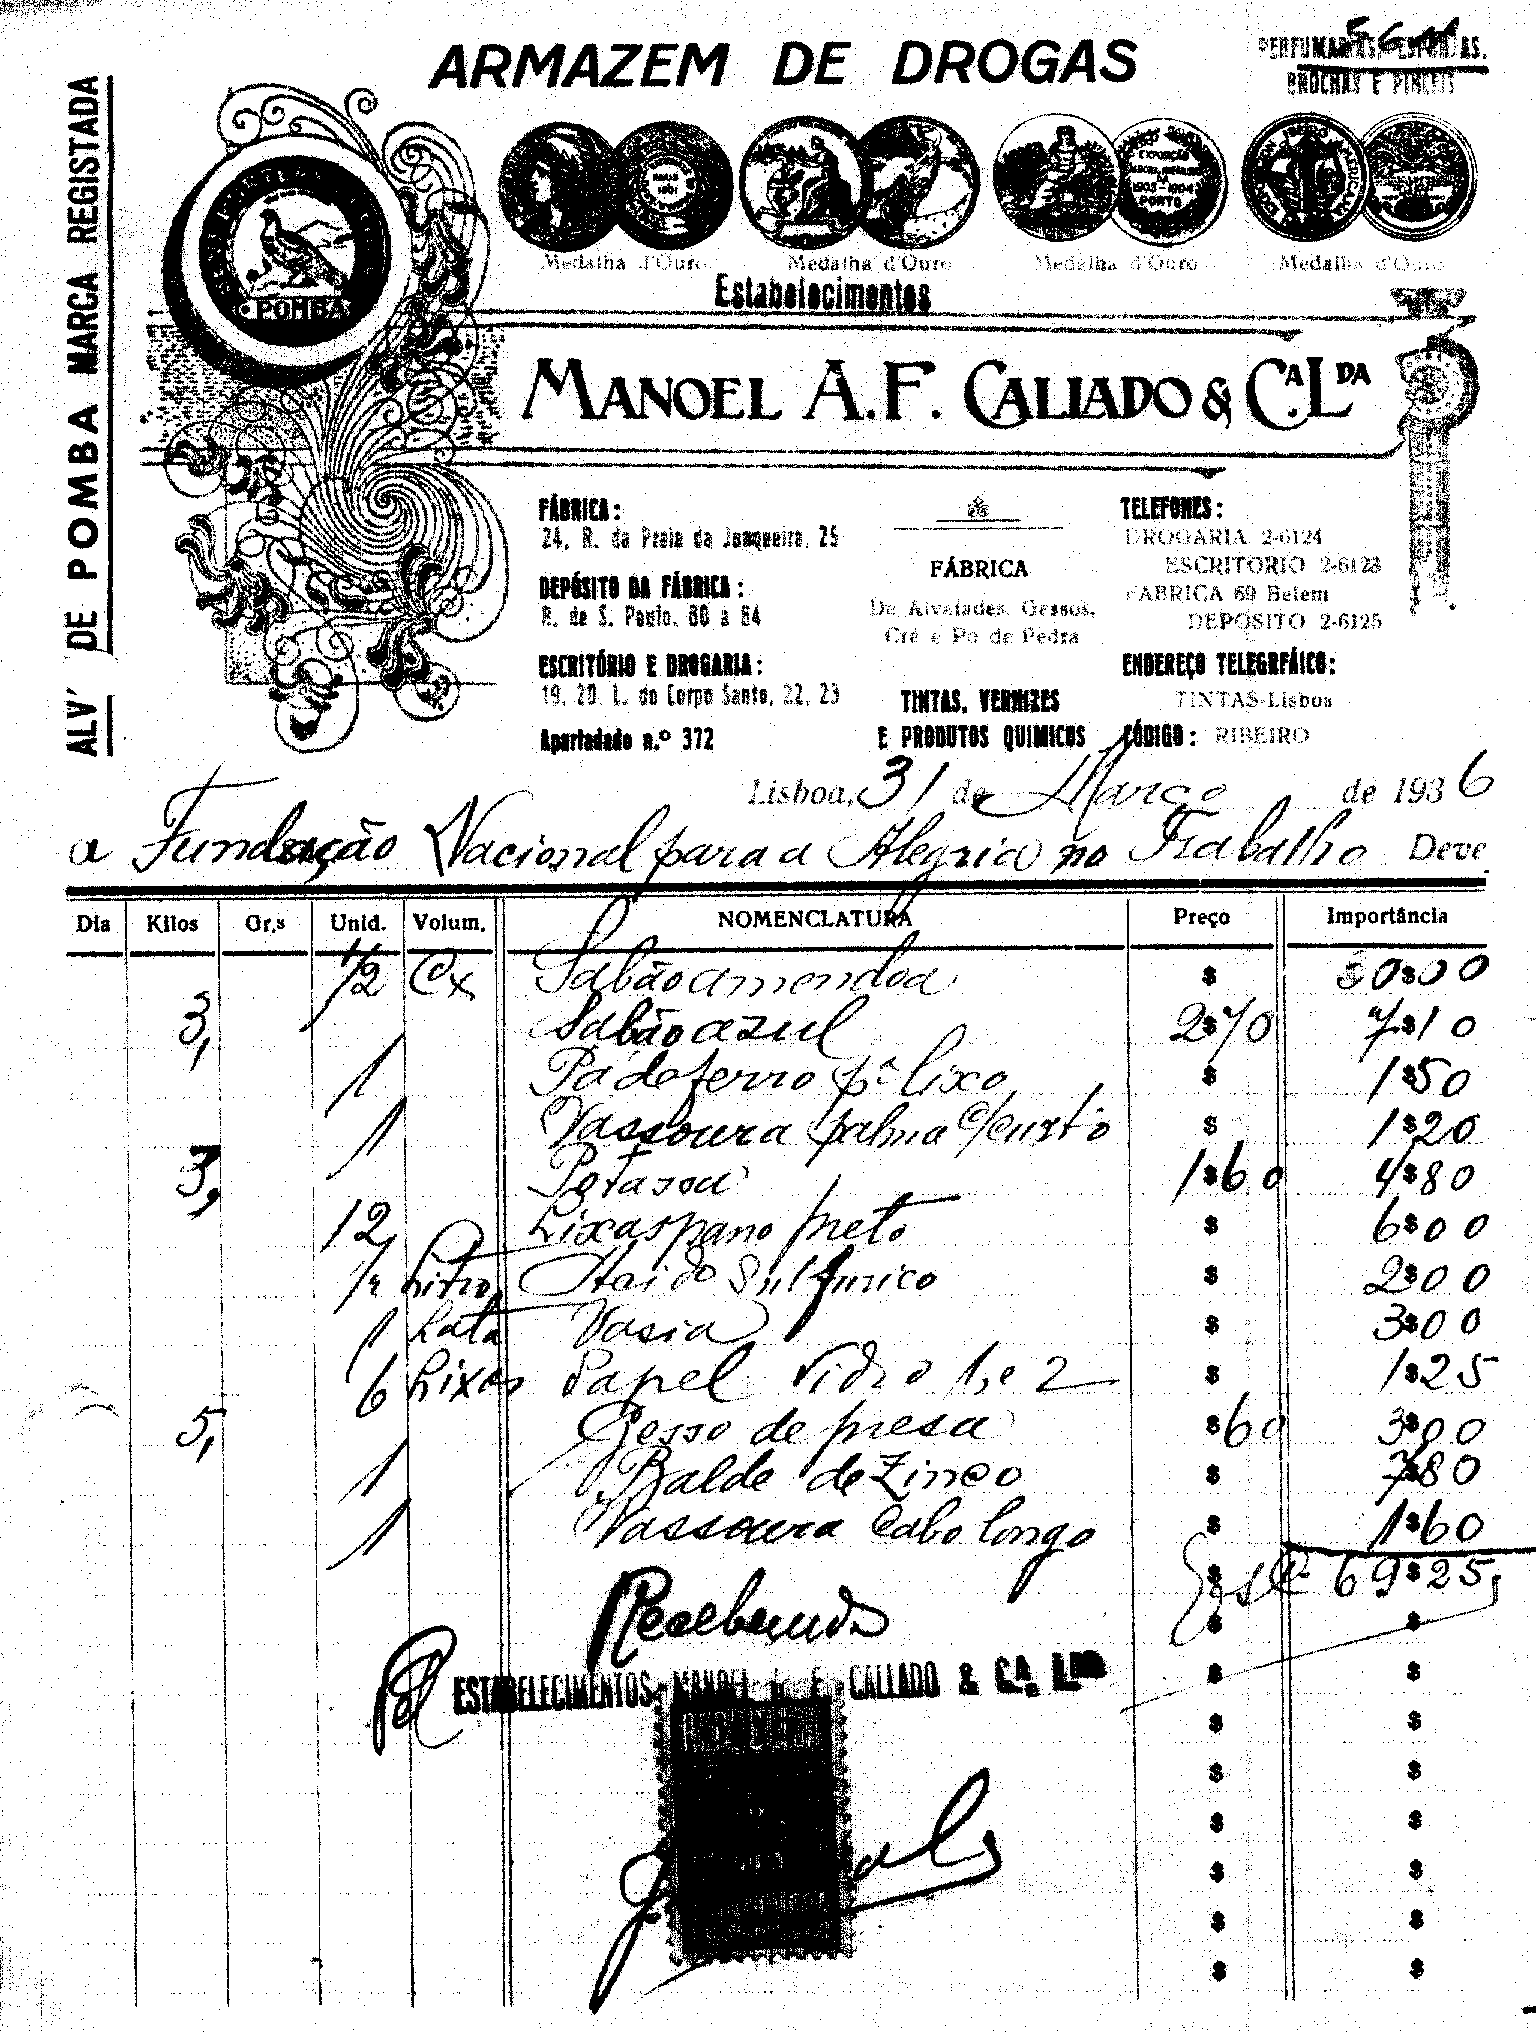 ARMAZEM DE DROGAS
BROCHAS E PINCEIS
ALV' DE POMBA MARCA REGISTADA
POMBA
PARIS
1901
EXPOSIÇÃO
1903-1904
PORTO
Medalha d'Ouro Medalha d'Ouro Medalha d'Ouro Medalha d'Ouro
Estabelecimentos
MANOEL A. F. CALLADO & CA. LDA
FÁBRICA:
24, R. da Praia da Junqueira, 25
DEPÓSITO DA FÁBRICA:
R. de S. Paulo, 80 a 84
ESCRITÓRIO E DROGARIA:
19, 20, L. do Corpo Santo, 22, 23
Apartadado n.º 372
FÁBRICA
De Alvaiades, Gessos,
Cré e Pó de Pedra
TINTAS, VERNIZES
E PRODUTOS QUIMICOS
TELEFONES:
DROGARIA 2-6124
ESCRITORIO 2-6123
FABRICA 69 Belem
DEPOSITO 2-6125
ENDEREÇO TELEGRFÁICO:
TINTAS-Lisboa
CÓDIGO: RIBEIRO
Lisboa, 31 de Março de 1936
a Fundação Nacional para a Alegria no Trabalho Deve
Dia Kilos Gr.s Unid. Volum. NOMENCLATURA Preço Importância
1/2 Cx Sabão amendoa $ 30$00
3, Sabão azul 2$70 7$10
1 Pá de ferro pª lixo $ 1$50
1 Vassoura palma c/curto $ 1$20
3, Potassa 1$60 4$80
12 Lixas pano preto $ 6$00
1/2 Litro Acido Sulfurico $ 2$00
1 Lata Vasia $ 3$00
6 Lixas Papel vidro 1, e 2 $ 1$25
5, Gesso de presa $60 3$00
1 Balde de Zinco $ 7$80
1 Vassoura Cabo longo $ 1$60
Esc 69$25
Recebemos
Pel ESTABELECIMENTOS MANOEL A. F. CALLADO & CA. LDA